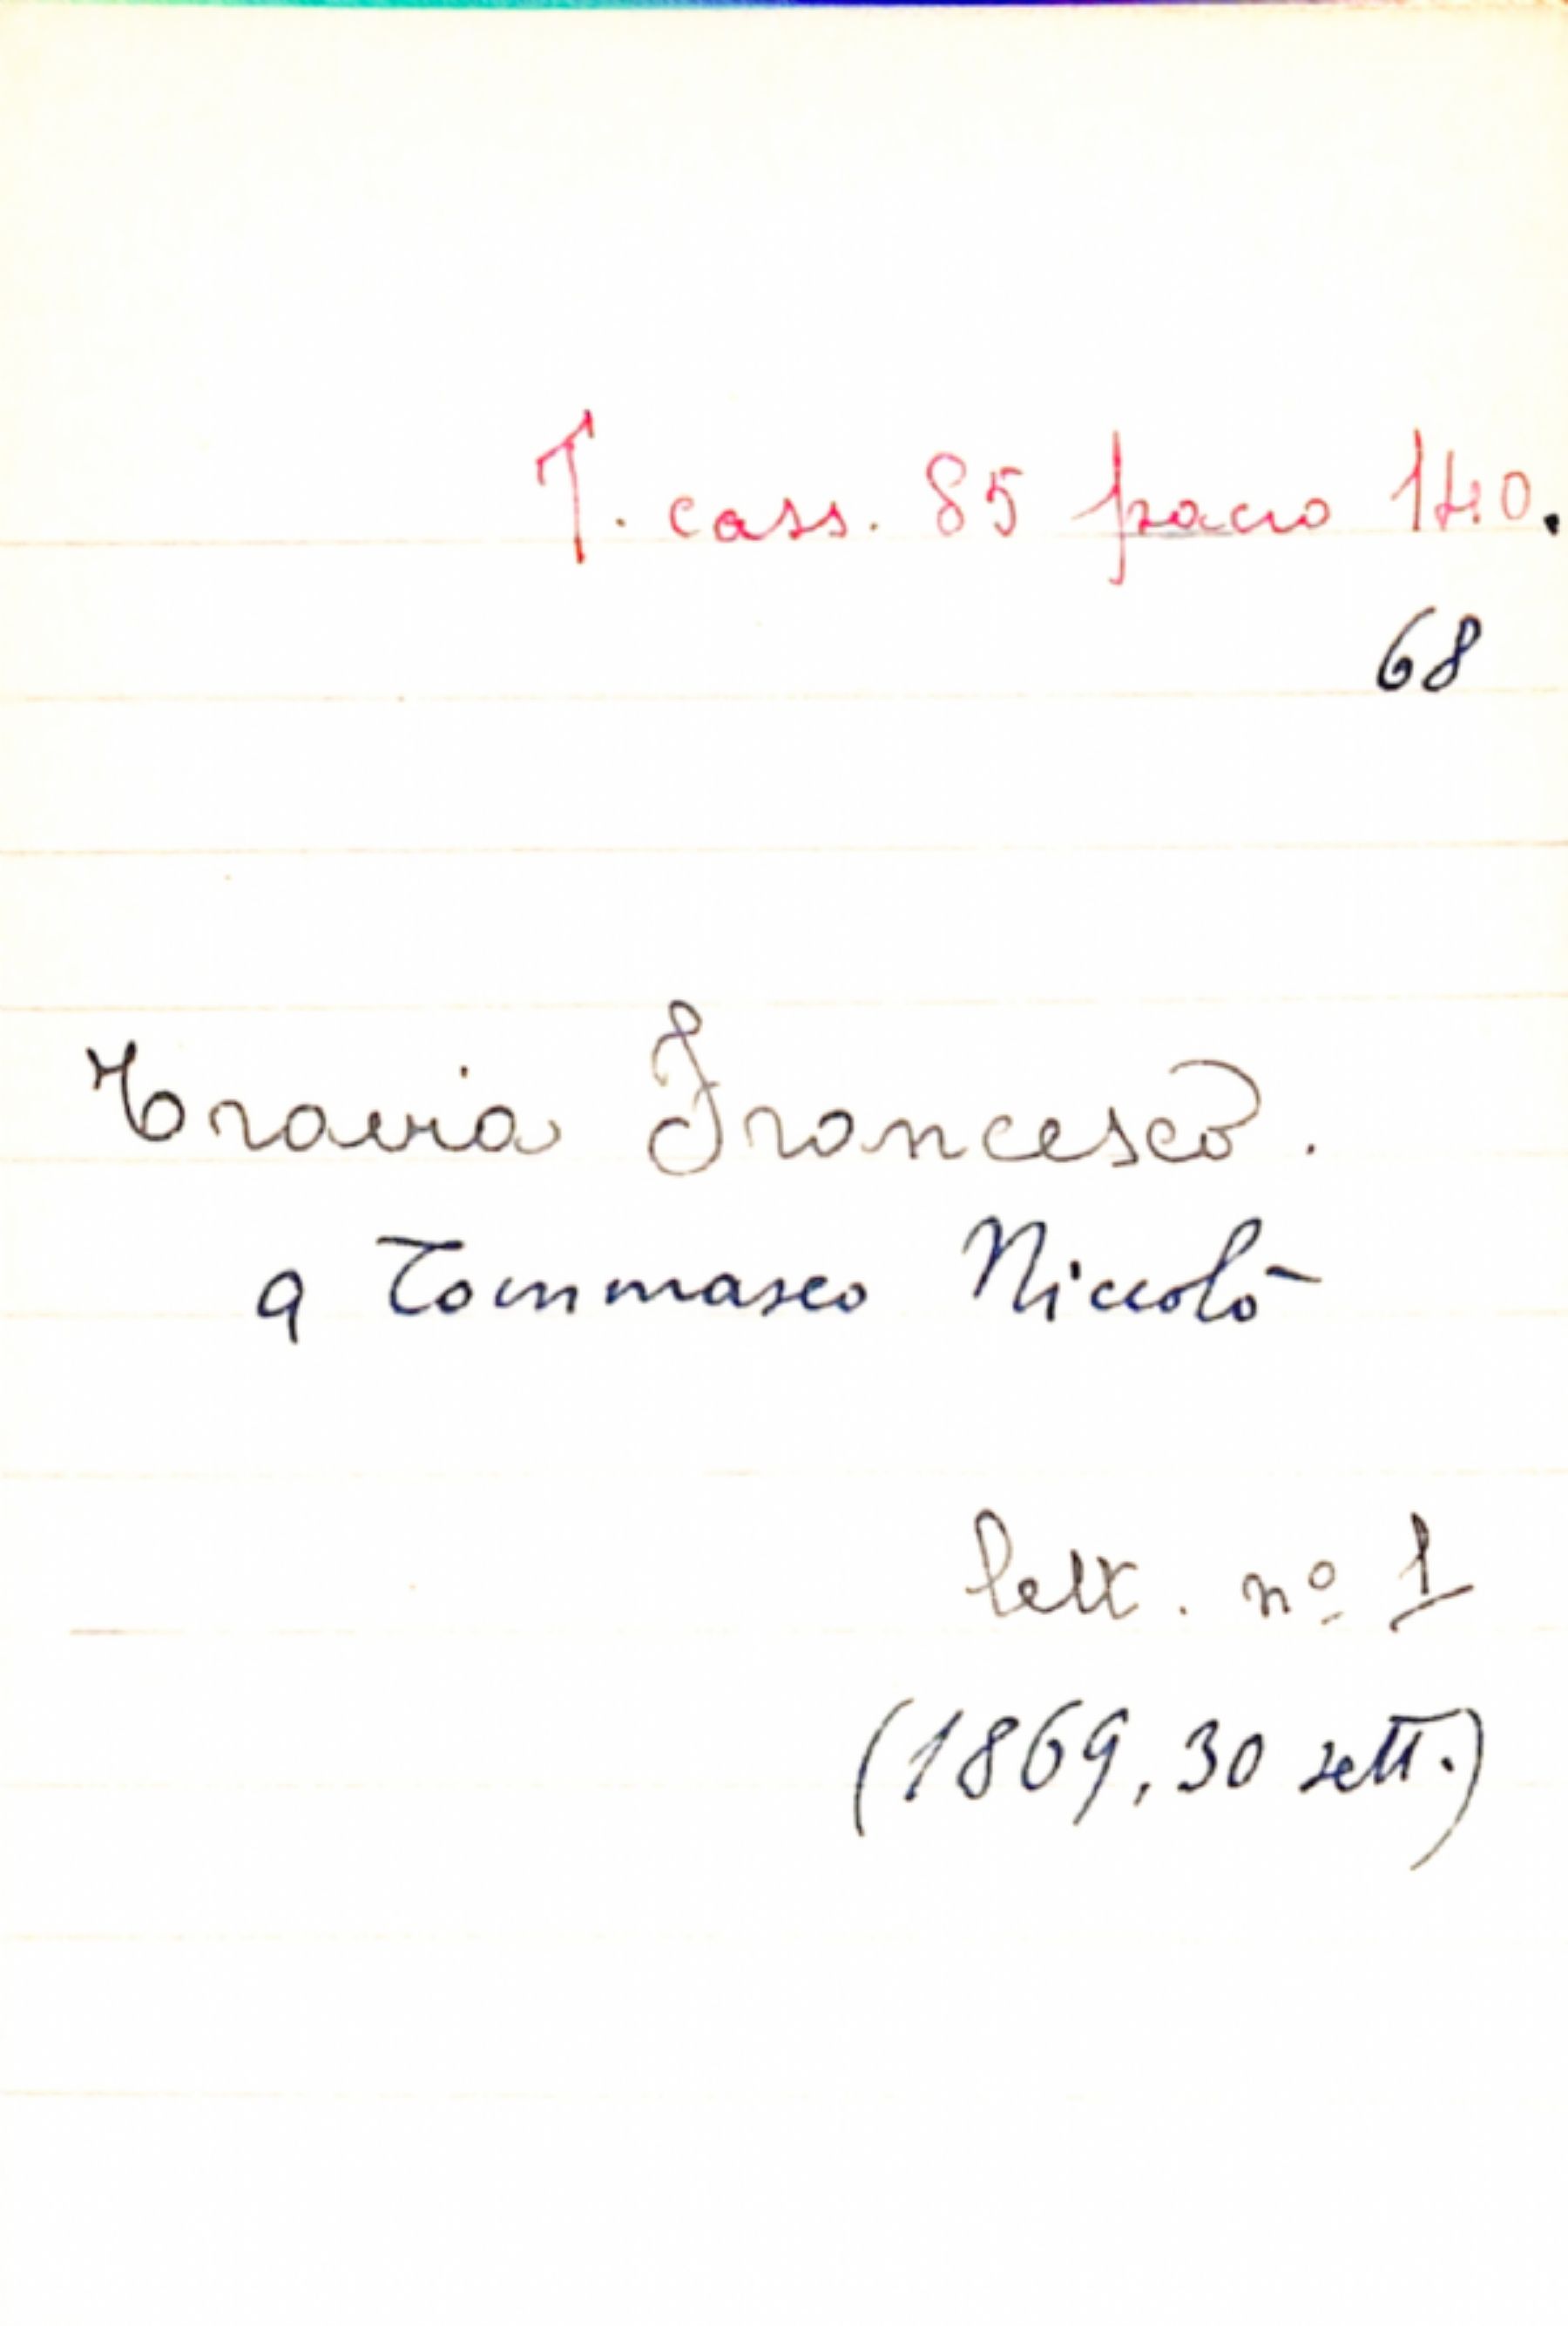 T. cass. 85 pacco 140.
68
Travia Francesco.
a Tommaseo Niccolò
lett. nº 1
(1869, 30 sett.)